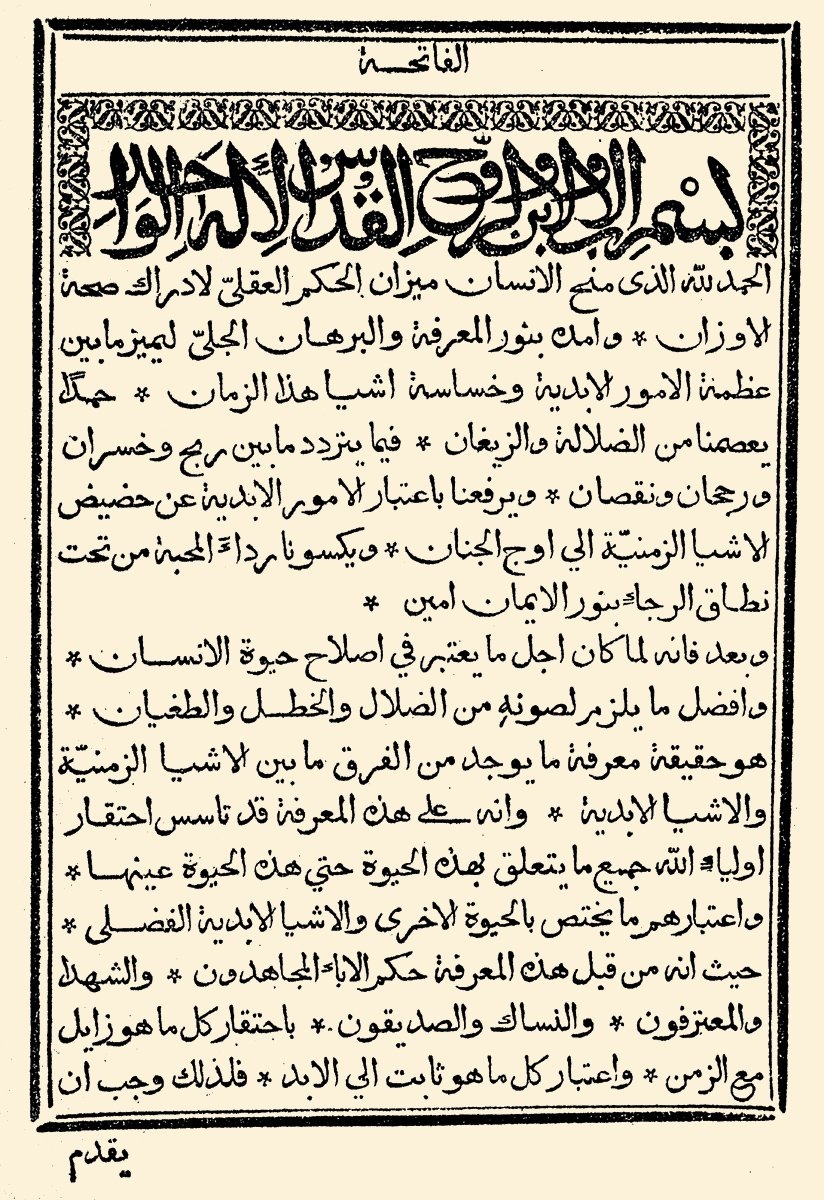 الفاتحة
بسم الاب والابن والروح القدس الاله الواحد
الحمد لله الذى منح الانسان ميزان الحكم العقلىّ لادراك صحة
الاوزان * وامده بنور المعرفة والبرهان الجلىّ ليميز مابين
عظمة الامور الابدية وخساسة اشيا هذا الزمان * حمدًا
يعصمنا من الضلالة والزيغان * فيما يتردد مابين ربح وخسران
ورجحان ونقصان * ويرفعنا باعتبار الامور الابدية عن حضيض
الاشيا الزمنيّة الي اوج الجنان * ويكسونا رداء المحبة من تحت
نطاق الرجاء بنور الايمان امين *
وبعد فانه لما كان اجل ما يعتبر في اصلاح حيوة الانسان *
وافضل ما يلزم لصونهِ من الضلال والخطل والطغيان *
هو حقيقة معرفة ما يوجد من الفرق ما بين الاشيا الزمنيّة
والاشيا الابدية * وانه على هذه المعرفة قد تاسس احتقار
اولياء الله جميع ما يتعلق بهذه الحيوة حتي هذه الحيوة عينها *
واعتبارهم ما يختص بالحيوة الاخرى والاشيا الابدية الفضلى *
حيث انه من قبل هذه المعرفة حكم الاباء المجاهدون * والشهدا
والمعترفون * والنساك والصديقون * باحتقار كل ما هو زايل
مع الزمن * واعتبار كل ما هو ثابت الي الابد * فلذلك وجب ان
يقدم